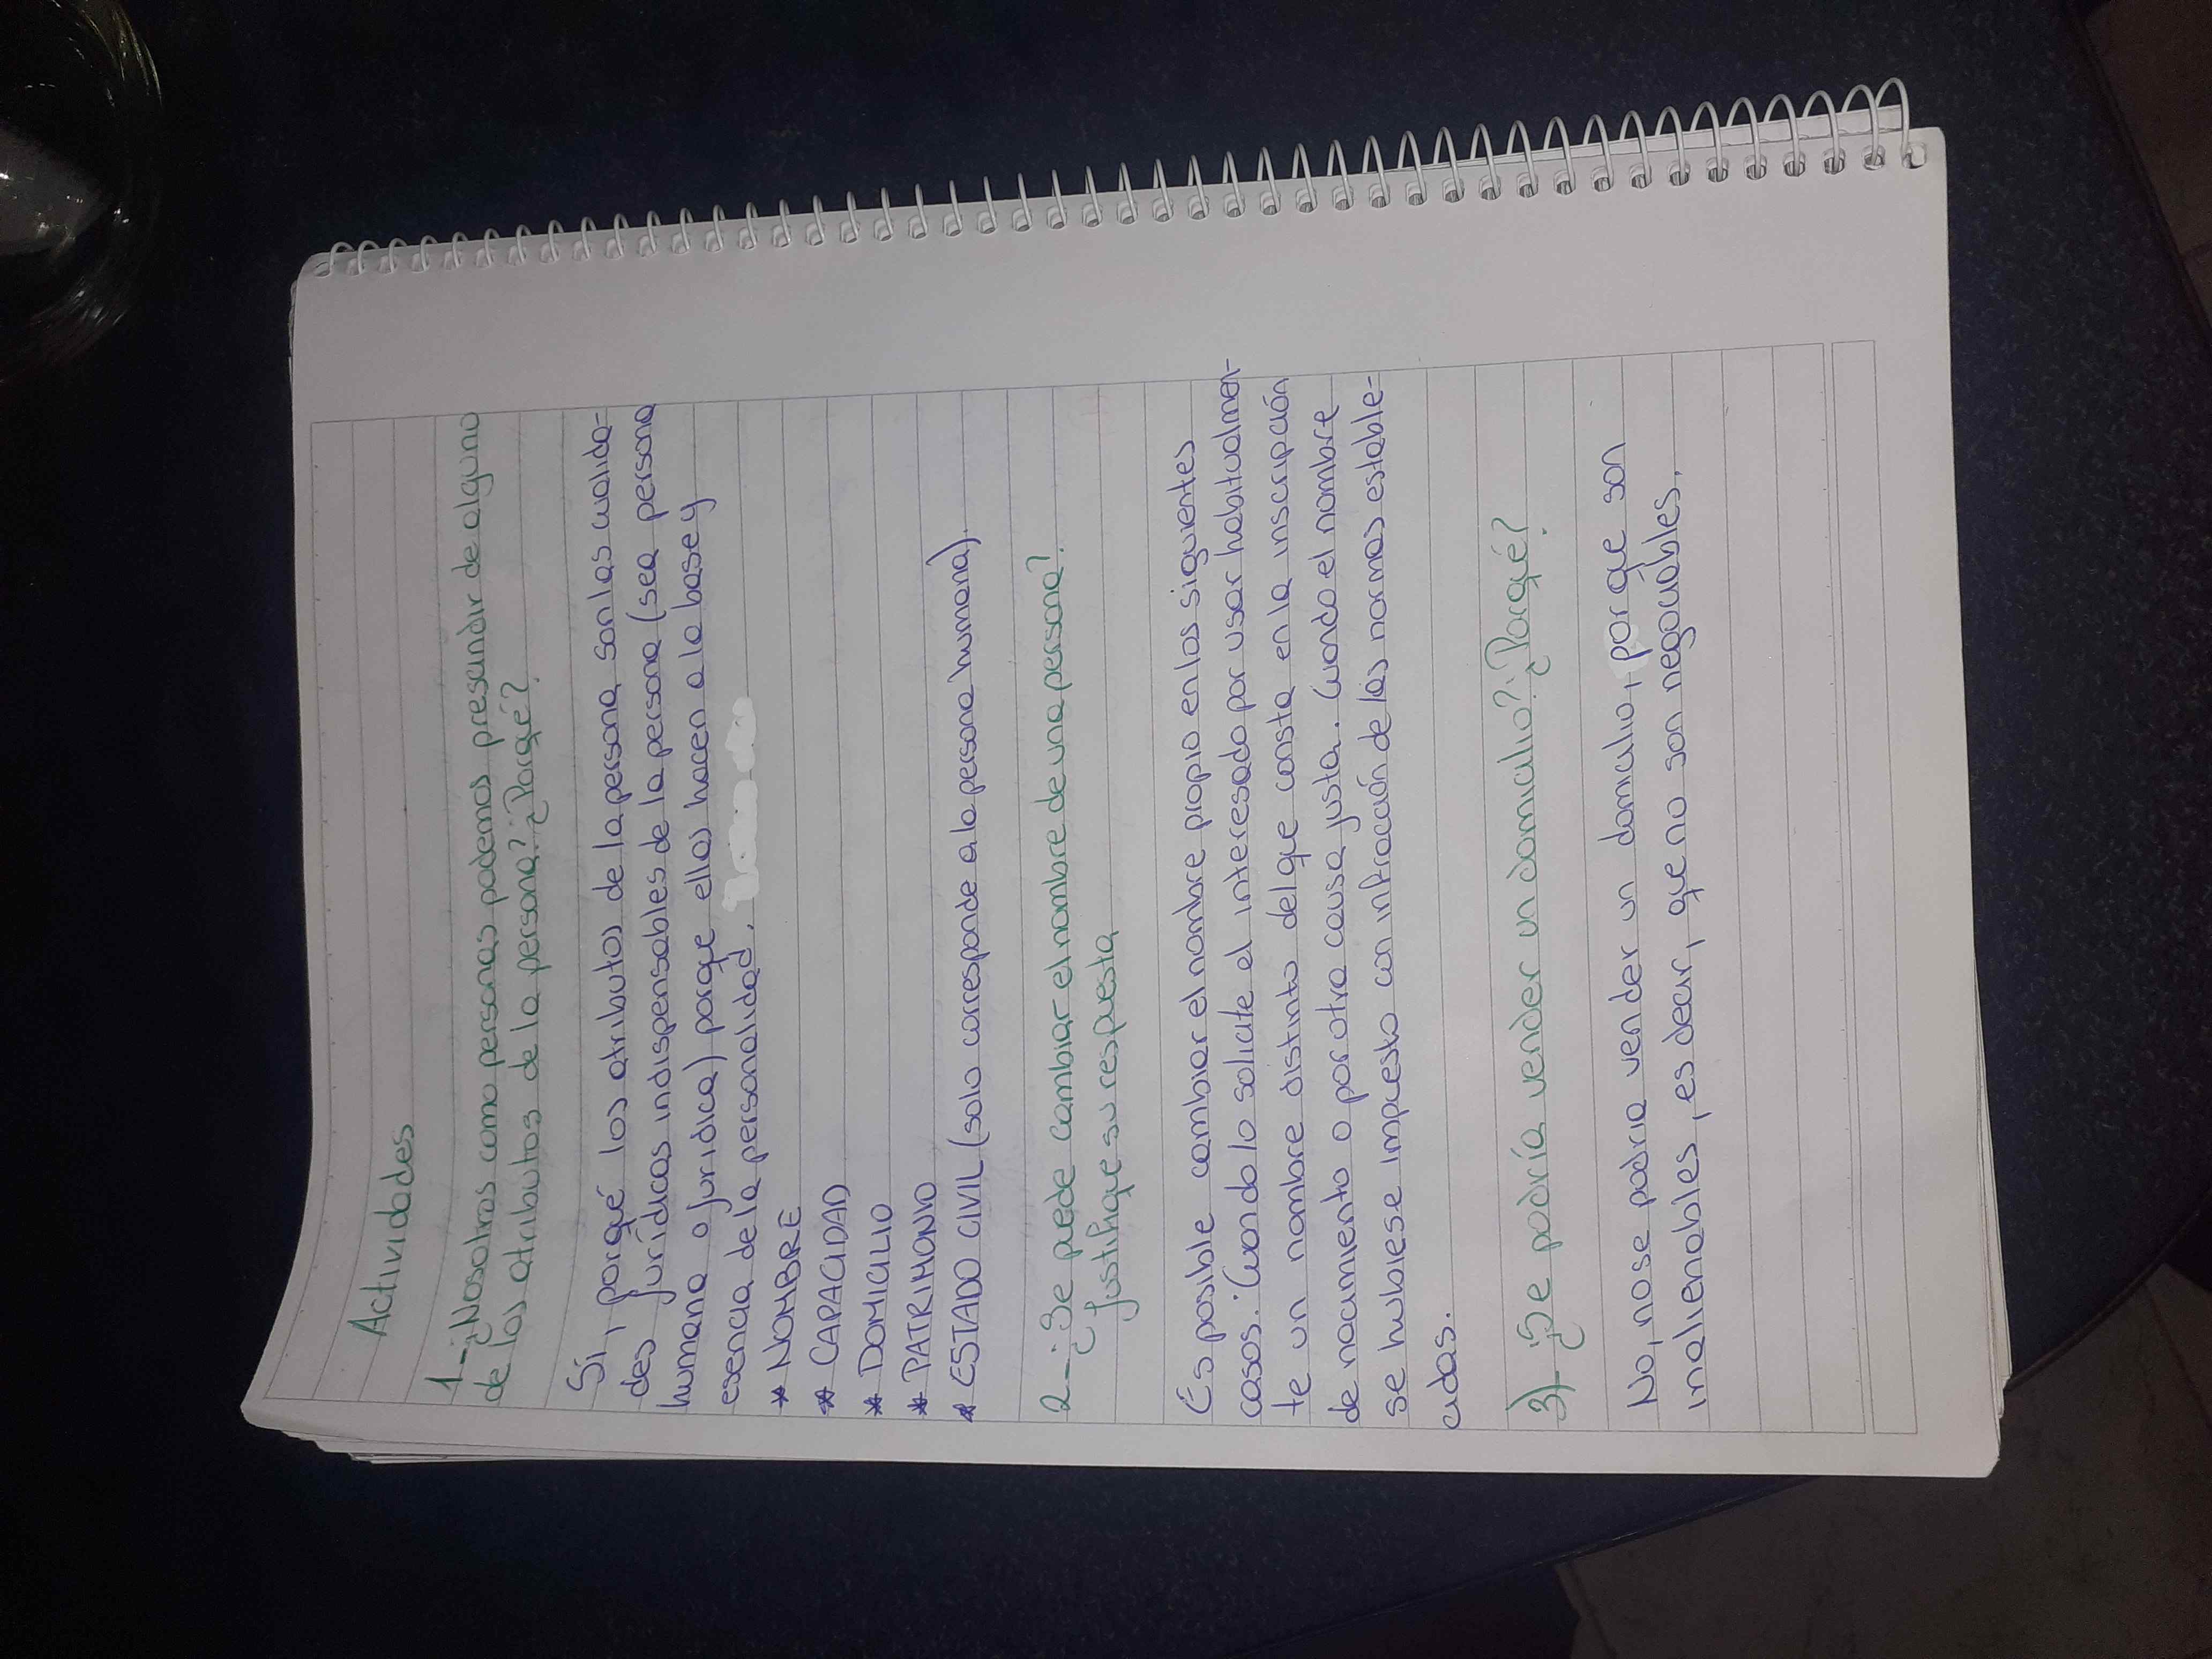 Actividades
1-¿Nosotros como personas podemos presundir de alguno
de los atributos de la persona? ¿Porqué?
Sí, porqué los atributos de la persona son las cualida-
des jurídicas indispensables de la persona (sea persona
humana o jurídica) porque ellos hacen a la base y
esencia de la personalidad.
* NOMBRE
* CAPACIDAD
* DOMICILIO
* PATRIMONIO
* ESTADO CIVIL (solo corresponde a la persona humana).
2-¿Se puede cambiar el nombre de una persona?
Justifique su respuesta
És posible cambiar el nombre propio en los siguientes
casos: Cuando lo solicite el interesado por usar habitualmen-
te un nombre distinto del que consta en la inscripción
de nacimiento o por otra causa justa. Cuando el nombre
se hubiese impuesto con infracción de las normas estable-
cidas.
3)-¿Se podría vender un domicilio? ¿Porqué?
No, no se podría vender un domicilio, porque son
inalienables, es decir, que no son negociables.